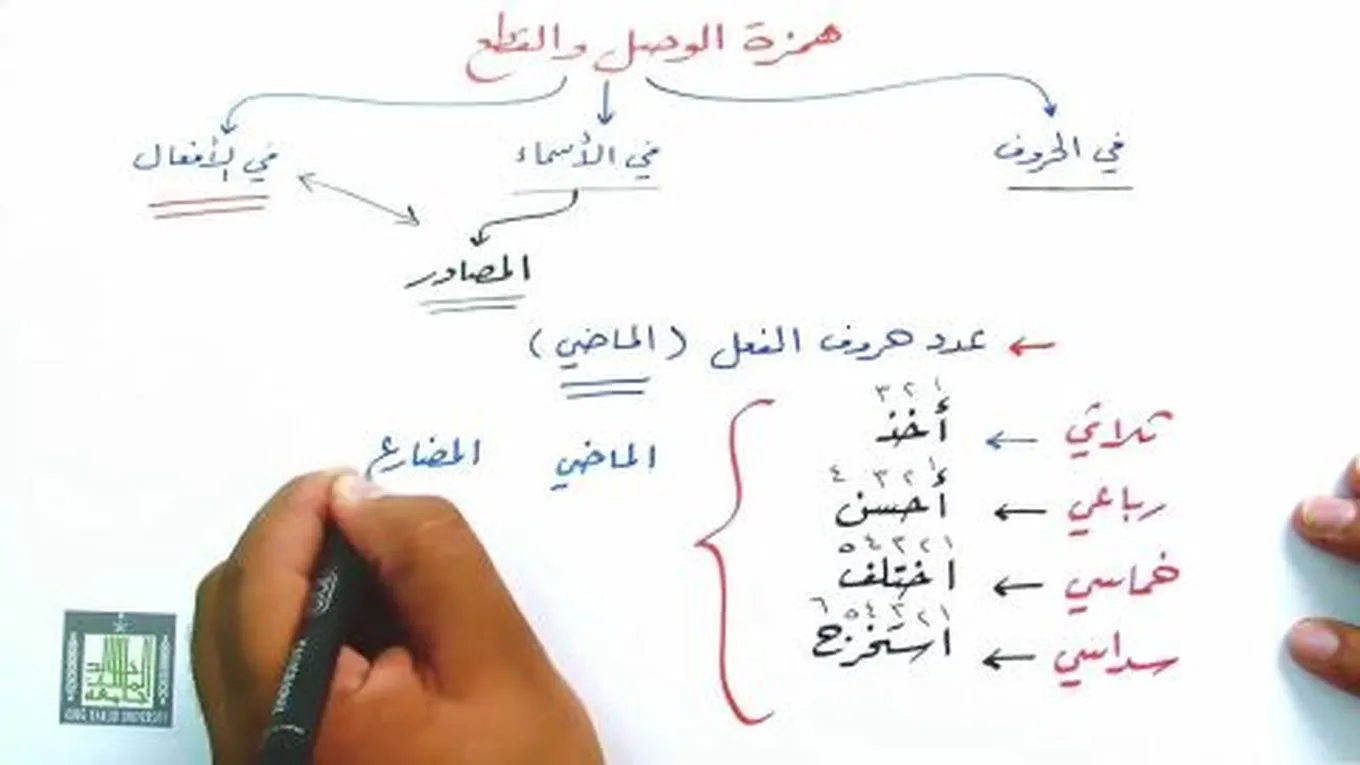 همزة الوصل والقطع
في الحروف في الأسماء في الأفعال
المصادر
← عدد حروف الفعل (الماضي)
١ ٢ ٣
ثلاثي ← أخذ
١ ٢ ٣ ٤
رباعي ← أحسن
الماضي المضارع
١ ٢ ٣ ٤ ٥
خماسي ← اختلف
١ ٢ ٣ ٤ ٥ ٦
سداسي ← استَخرج
جامعة الملك خالد
KING KHALID UNIVERSITY